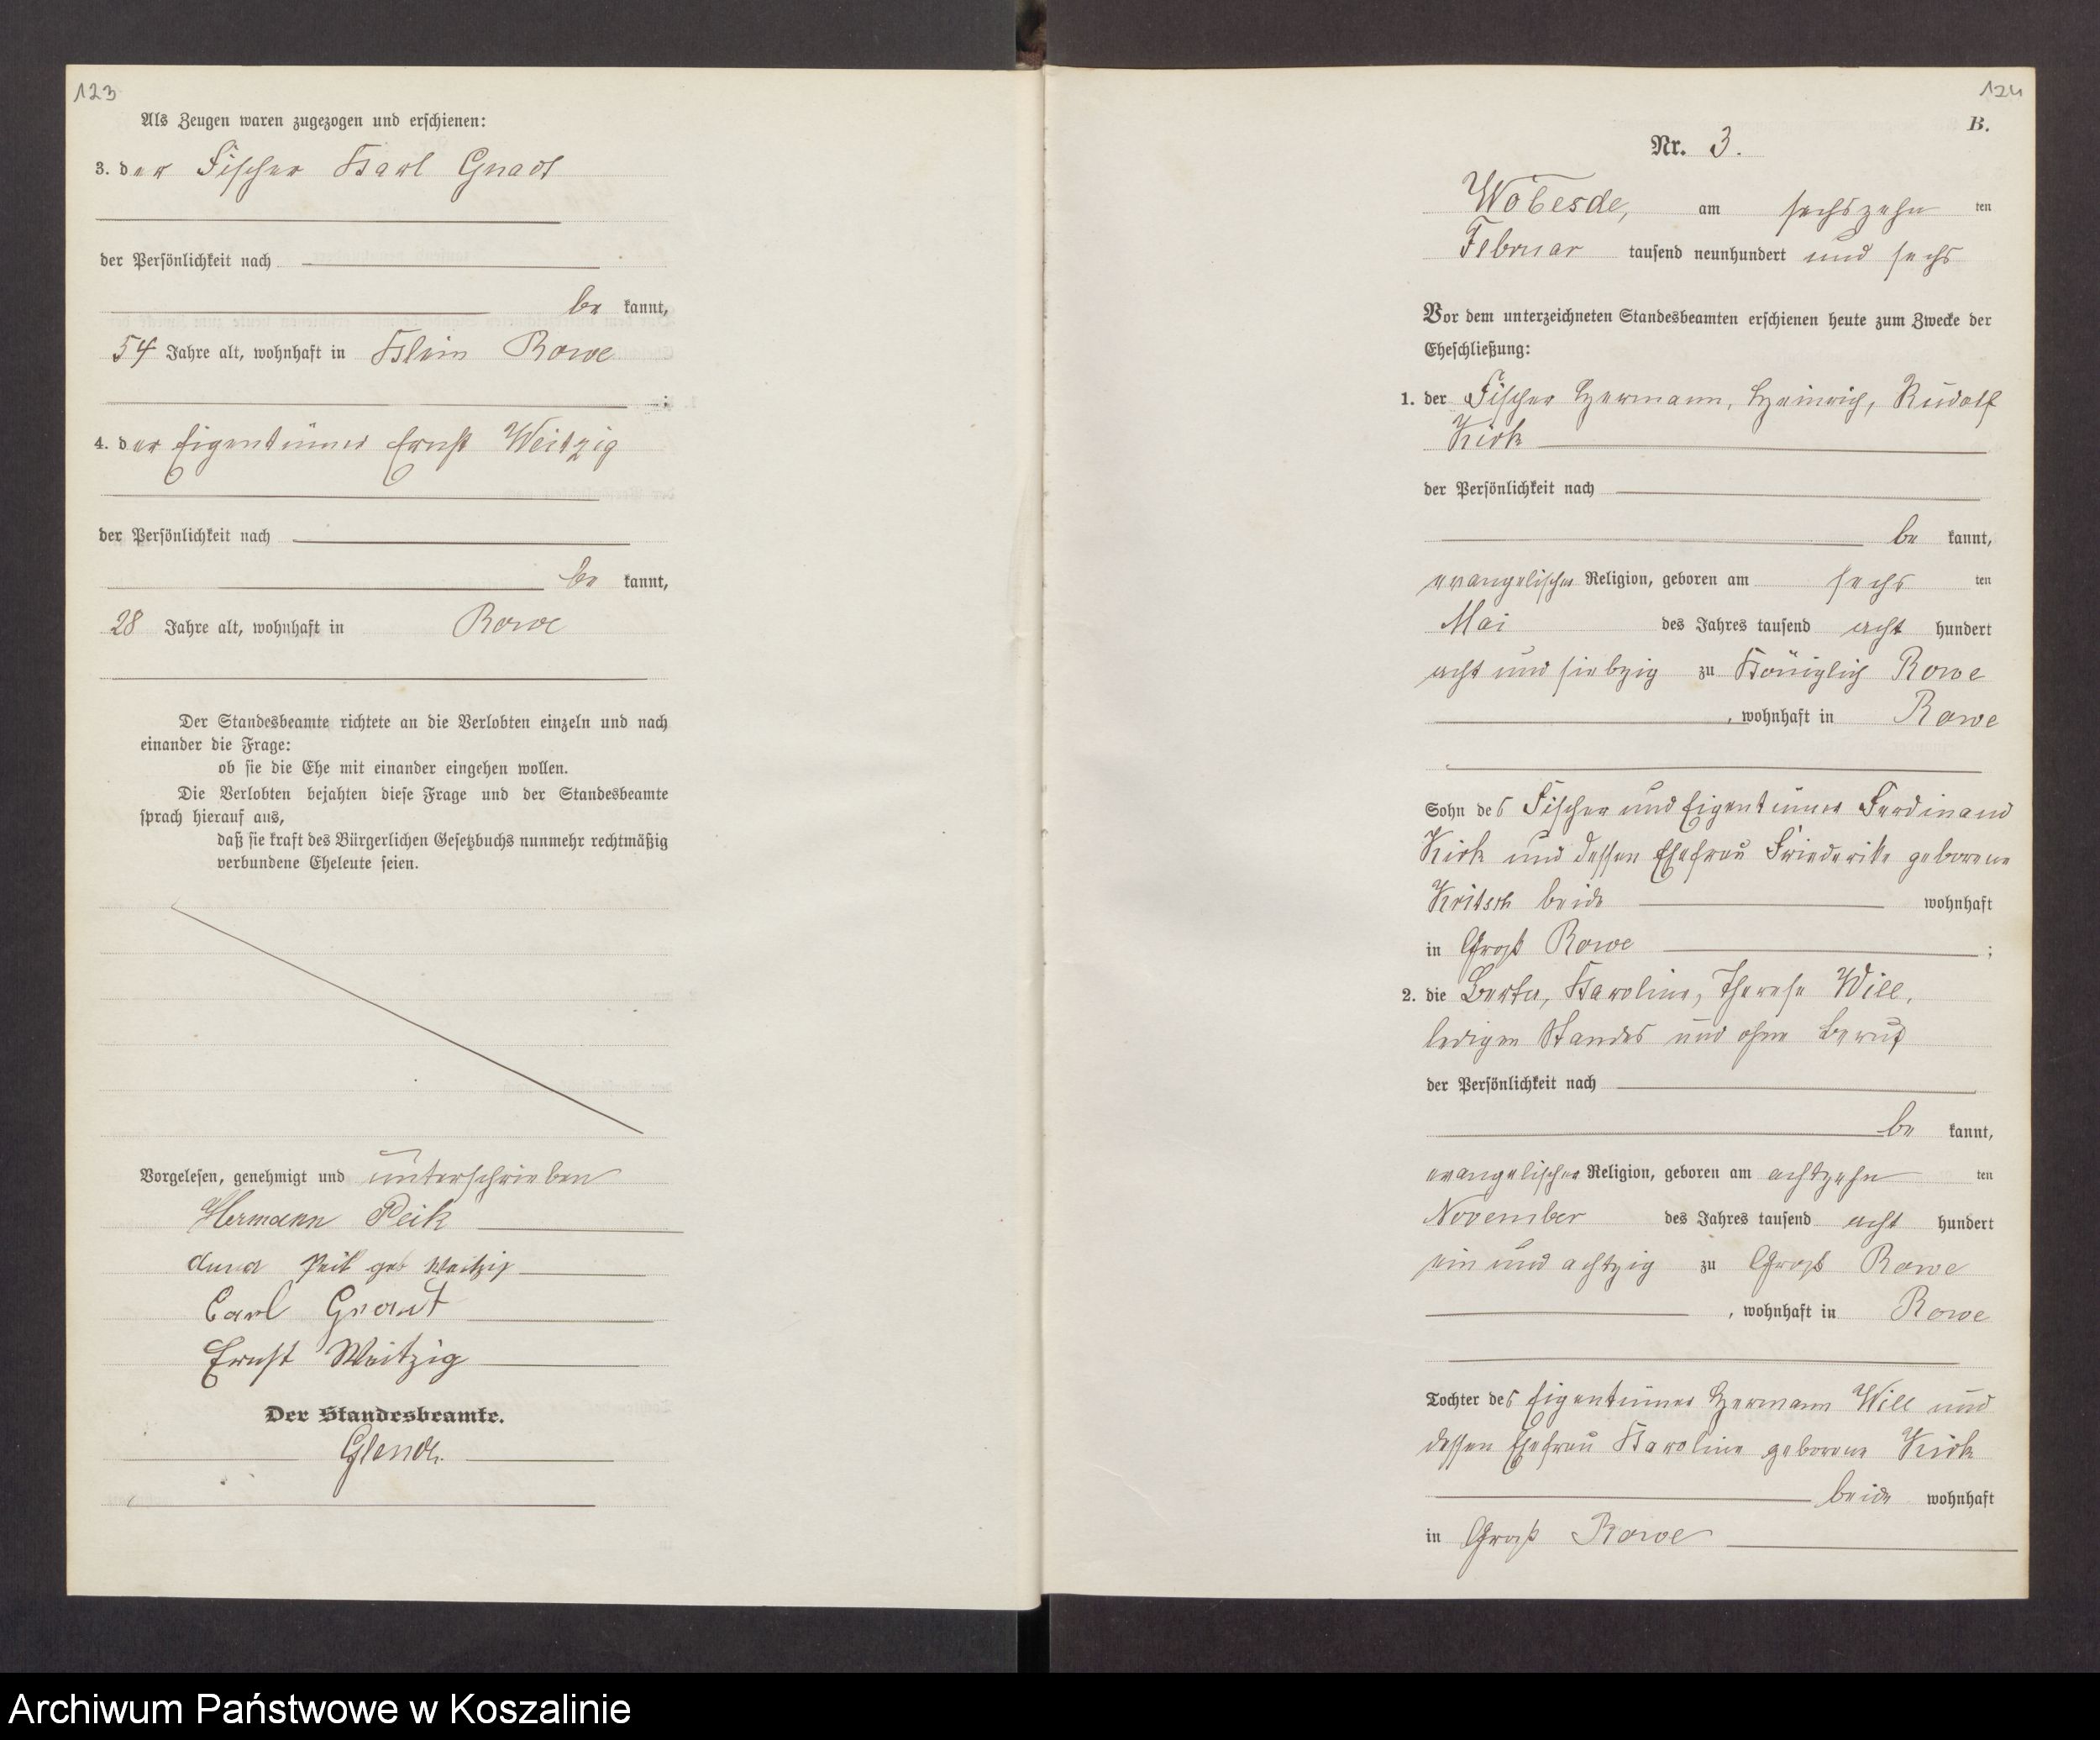 123
Als Zeugen waren zugezogen und erschienen:
3. der Fischer Karl Gnadt
der Persönlichkeit nach
be kannt,
54 Jahre alt, wohnhaft in Klein Rowe
;
4. der Eigentümer Ernst Weitzig
der Persönlichkeit nach
be kannt,
28 Jahre alt, wohnhaft in Rowe
Der Standesbeamte richtete an die Verlobten einzeln und nach
einander die Frage:
ob sie die Ehe mit einander eingehen wollen.
Die Verlobten bejahten diese Frage und der Standesbeamte
sprach hierauf aus,
daß sie kraft des Bürgerlichen Gesetzbuchs nunmehr rechtmäßig
verbundene Eheleute seien.
Vorgelesen, genehmigt und unterschrieben
Hermann Peik
Anna Peik geb Weitzig
Carl Gnadt
Ernst Weitzig
Der Standesbeamte.
124
B.
Nr. 3.
Wobesde, am sechszehn ten
Februar tausend neunhundert und sechs
Vor dem unterzeichneten Standesbeamten erschienen heute zum Zwecke der
Eheschließung:
1. der Fischer Hermann, Heinrich, Rudolf
Kirk
der Persönlichkeit nach
be kannt,
evangelischer Religion, geboren am sechs ten
Mai des Jahres tausend acht hundert
acht und siebzig zu Königlich Rowe
, wohnhaft in Rowe
Sohn des Fischer und Eigentümer Ferdinand
Kirk und dessen Ehefrau Friederike geborene
Kritsch beide wohnhaft
in Groß Rowe ;
2. die Berta, Karoline, Therese Will,
ledigen Standes und ohne Beruf
der Persönlichkeit nach
be kannt,
evangelischer Religion, geboren am achtzehn ten
November des Jahres tausend acht hundert
ein und achtzig zu Groß Rowe
, wohnhaft in Rowe
Tochter des Eigentümer Hermann Will und
dessen Ehefrau Karoline geborene Kirk
beide wohnhaft
in Groß Rowe
Archiwum Państwowe w Koszalinie